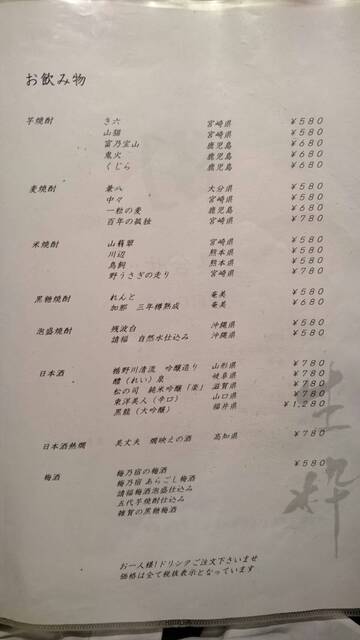 お飲み物
芋焼酎 き六 宮崎県 ¥580
山猫 宮崎県 ¥580
富乃宝山 鹿児島 ¥680
鬼火 鹿児島 ¥680
くじら 鹿児島 ¥680
麦焼酎 兼八 大分県 ¥580
中々 宮崎県 ¥580
一粒の麦 鹿児島 ¥680
百年の孤独 宮崎県 ¥780
米焼酎 山翡翠 宮崎県 ¥580
川辺 熊本県 ¥580
鳥飼 熊本県 ¥580
野うさぎの走り 宮崎県 ¥780
黒糖焼酎 れんと 奄美 ¥580
加那 三年樽熟成 奄美 ¥680
泡盛焼酎 残波白 沖縄県 ¥580
請福 自然水仕込み 沖縄県 ¥580
日本酒 楯野川清流 吟醸造り 山形県 ¥780
醴（れい）泉 岐阜県 ¥780
松の司 純米吟醸「楽」 滋賀県 ¥780
東洋美人（辛口） 山口県 ¥780
黒龍（大吟醸） 福井県 ¥1,280
日本酒熱燗 美丈夫 燗映えの酒 高知県 ¥780
梅酒 梅乃宿の梅酒 ¥580
梅乃宿 あらごし梅酒
請福梅酒泡盛仕込み
五代芋焼酎仕込み
雑賀の黒糖梅酒
お一人様1ドリンクご注文下さいませ
価格は全て税抜表示となっています